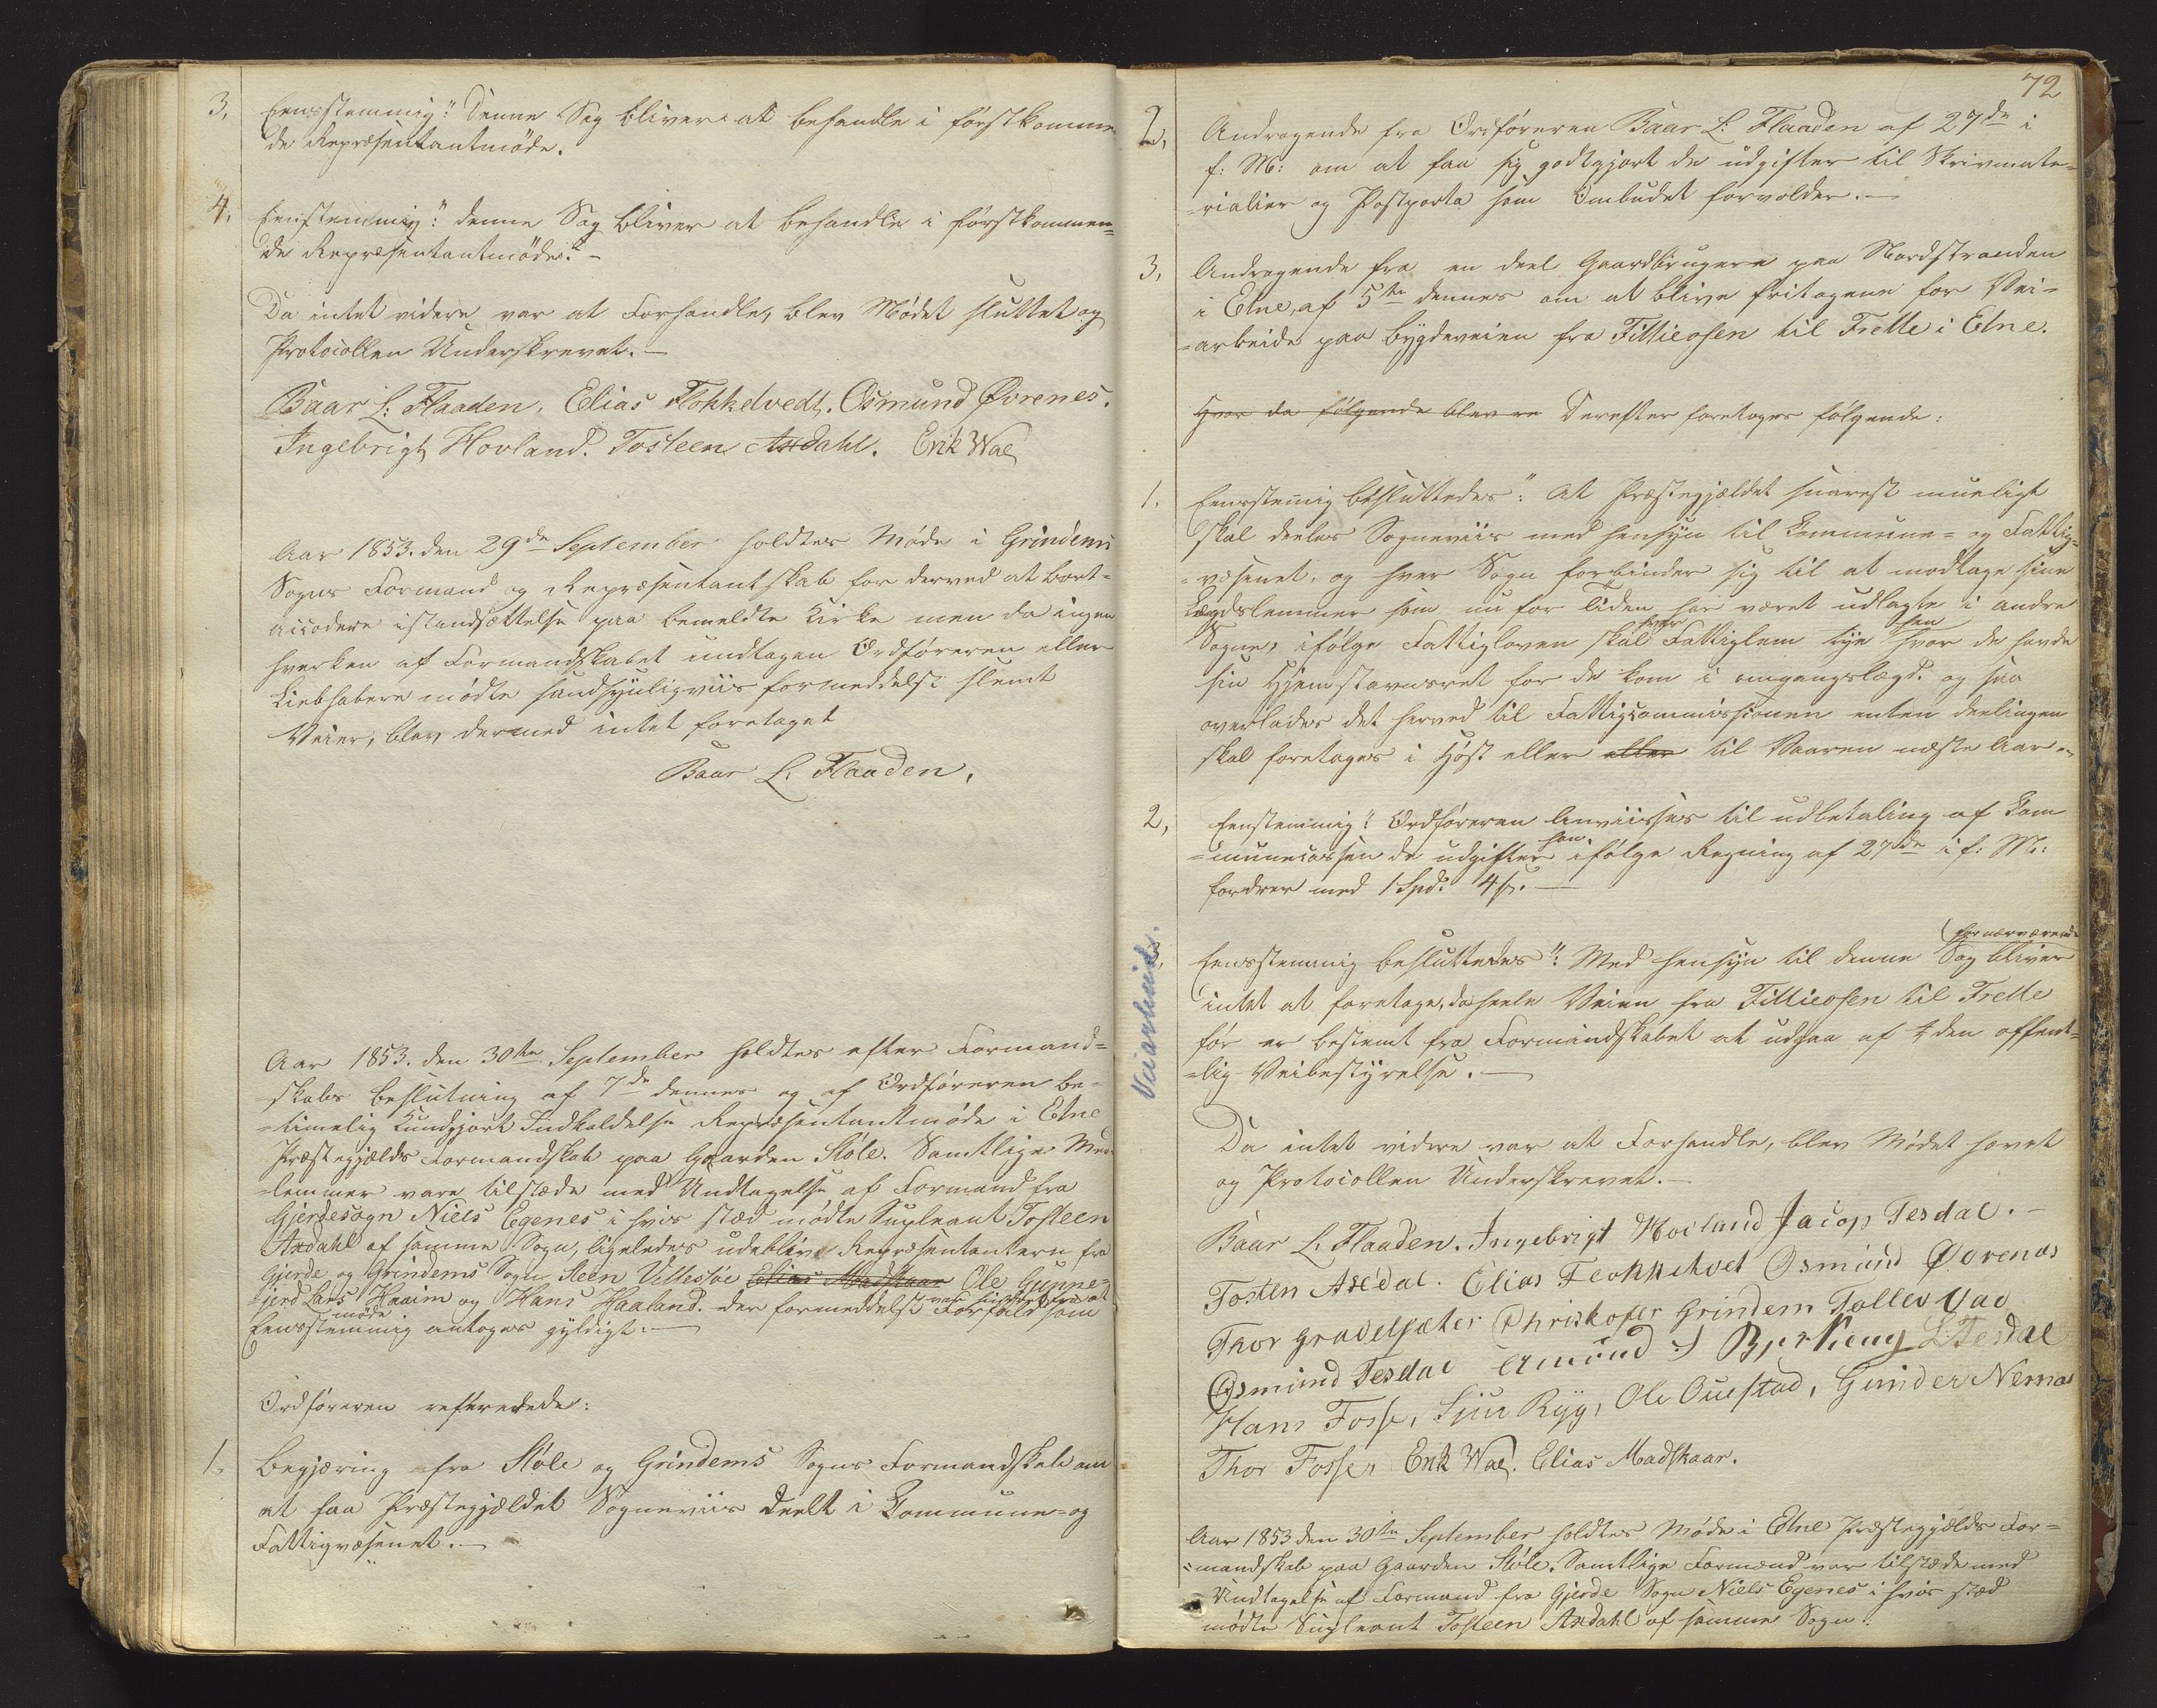 3, Eensstemmig: Denne Sag bliver at behandle i førstkommen
de Repræsentantmöde.
4, Eenstemmig: denne Sag bliver at behandle i førstkommen=
de Repræsentantmöde. -
Da intet videre var at Forhandle, blev Mödet sluttet og
Protocollen Underskrevet. -
Baar L: Flaaden, Elias Flokketvedt. Osmund Øvrenes.
Ingebrigt Hovland. Tosteen Axdahl. Erik Wae
Aar 1853. den 29de September holdtes Möde i Grindems
Sogns Formand og Repræsentantskab for derved at bort=
accodere istandsættelse paa bemeldte Kirke men da ingen
hverken af Formandskabet undtagen Ordføreren eller
Liebhabere mödte sandsynligviis formeddelst slemt
Veier, blev dermed intet foretaget
Baar L. Flaaden,
Aar 1853. den 30te September holdtes efter Formand=
=skabs beslutning af 7de dennes og af Ordføreren be=
=timelig Kundgjort Indkaldelse Repræsentantmöde i Etne
Præstegjælds Formandskab paa Gaarden Støle. Samtlige Med
=lemmer vare tilstæde med Undtagelse af Formand fra
Gjerdesogn Niels Egenes i hvis stæd mödte Supleant Tosteen
Axdahl af samme Sogn, ligeledes udeblive Repræsentantern fra
Gjerde og Grindems Sogn Steen Vettesøe Elias Madskaar Ole Gunne=
=jerd Lars Haaim og Hans Haaland. der formeddelst Forfald som
möde
Eensstemmig antoges gyldigt. -
Ordføreren refererede:
1. Begjæring fra Støle og Grindems Sogns Formandskab om
at faa Præstegjældet Sogneviis deelt i Kommune= og
Fattigvæsenet. -
72
2, Andragende fra Ordføreren Baar L: Flaaden af 27de i
f: M: om at faa sig godtgjort de udgifter til Skrivmate=
=rialier og Postporto som Ombudet forvolder. -
3, Andragende fra en deel Gaardbrugere paa Nordstranden
i Etne, af 5te dennes om at blive fritagene for Vei=
=arbeide paa bygdeveien fra Fittieosen til Frette i Etne.
Hvor da følgende blev re Derefter foretoges følgende:
1. Eensstemmig besluttedes: At Præstegjældet snarest mueligt
skal deeles Sogneviis med hensyn til Kommune= og Fattig=
=væsenet, og hver Sogn forbinder sig til at modtage sine
Lægdslemmer som nu for Tiden har været udlagte i andre
Sogne, ifølge Fattigloven skal hver Fattiglem tye hen hvor de havde
sin Hjemstavnsret for de kom i omgangslægd. og saa
overlades det herved til Fattigcommissionen enten deelingen
skal foretages i Høst eller eller til Vaaren næste Aar. -
2, Eenstemmig: Ordføreren anviisses til udbetaling af Kom
=munecassen de udgifter han ifølge Regning af 27de i f: M:
fordrer med 1 Spd. 4 s. -
Veiarbeide.
for nærværende
Eensstemmig besluttedes: Med hensyn til denne Sag bliver
intet at foretage, da heele Veien fra Fittieosen til Frette
før er bestemt fra Formandskabet at udgaa af den offent=
=lig Veibestyrelse. -
Da intet videre var at Forhandle, blev Mödet hævet
og Protocollen Underskrevet. -
Baar L. Flaaden. Ingebrigt Hovland Jacop Tesdal. -
Tosten Axsdal. Elias Flokketvet Osmund Øvrenas
Thor Gradelsæter Christofer Grindem Tollev Vad
Osmund Tesdal Amund J Bjerkeng L Tesdal
Hans Fosse, Siur Ryg, Ole Ouestad, Gunder Nernas
Thor Fosse, Erik Wae. Elias Madskaar.
Aar 1853 den 30te September holdtes Möde i Etne Præstegjælds For=
=mandskab paa Gaarden Støle. Samtlige Formænd var tilstæde med
Undtagelse af Formand fra Gjerde Sogn Niels Egenes i hvis stæd
mödte Supleant Tosteen Axdahl af samme Sogn.